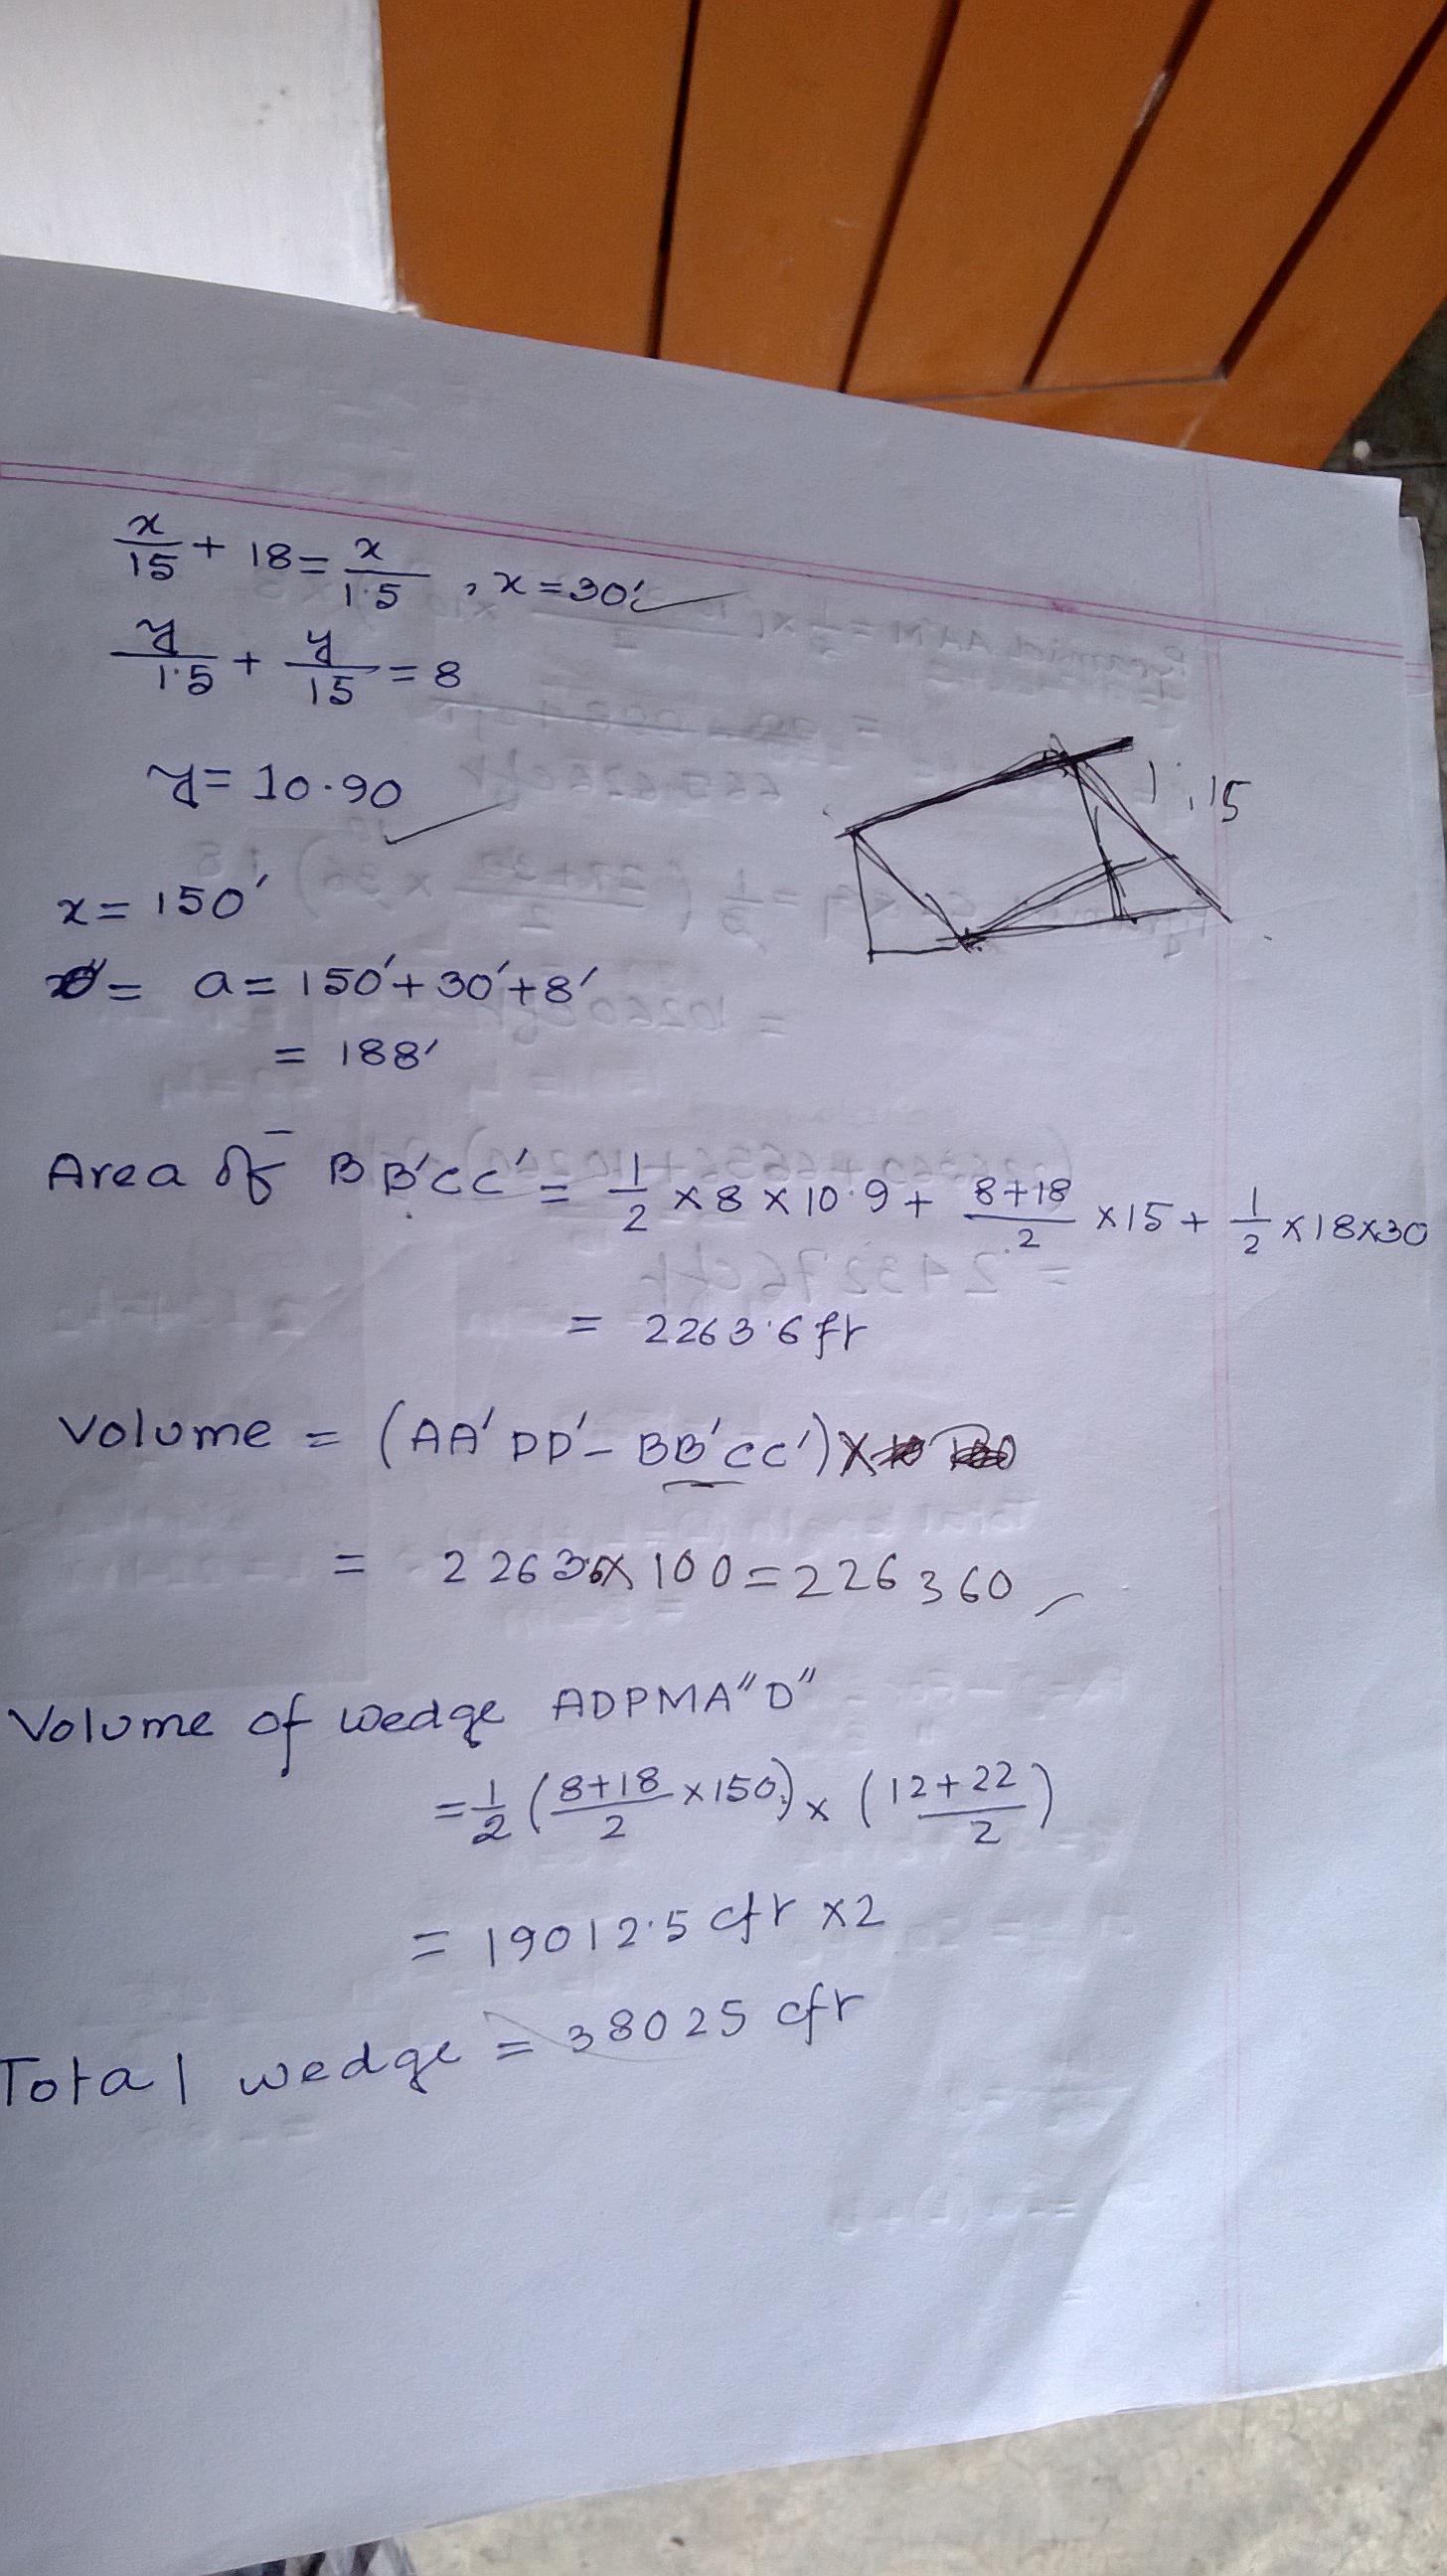 x/15 + 18 = x/1.5 , x = 30'
y/1.5 + y/15 = 8
y = 10.90
1:15
x = 150'
= a = 150' + 30' + 8'
= 188'
Area of BB'CC' = 1/2 × 8 × 10.9 + (8+18)/2 × 15 + 1/2 × 18×30
= 2263.6 ft
Volume = (AA'DD' - BB'CC') ×
= 2263.6 × 100 = 226360
Volume of wedge ADPMA"D"
= 1/2 ( (8+18)/2 × 150 ) × ( (12+22)/2 )
= 19012.5 cft ×2
Total wedge = 38025 cft